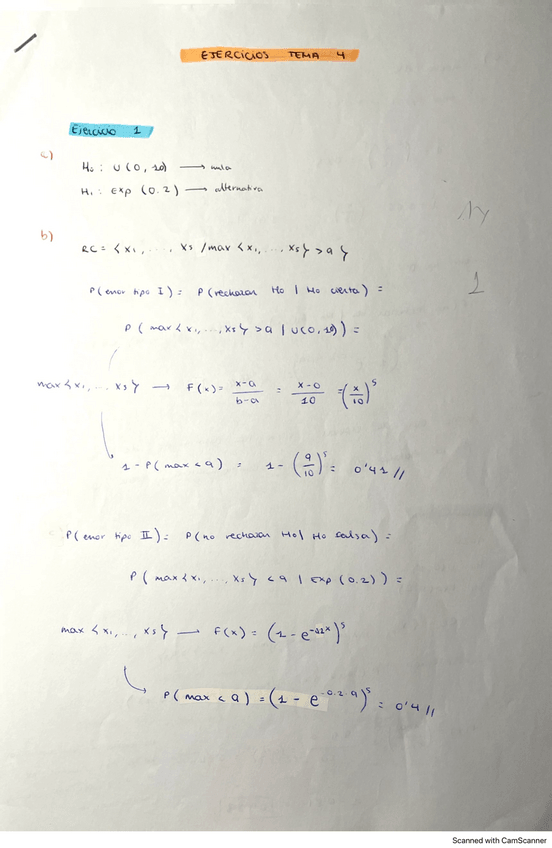 EJERCICIOS TEMA 4
Ejercicio 1
c)
H₀ : U(0, 10) → nula
H₁ : exp (0.2) → alternativa
b)
RC = {x₁, ..., x₅ / max {x₁, ..., x₅} > 9}
P(error tipo I) = P(rechazar H₀ | H₀ cierta) =
P( max {x₁, ..., x₅} > 9 | U(0, 10)) =
max {x₁, ..., x₅} → F(x) = \frac{x-a}{b-a} = \frac{x-0}{10} = (\frac{x}{10})⁵
1 - P(max < 9) = 1 - (\frac{9}{10})⁵ = 0'41 //
P(error tipo II) = P(no rechazar H₀ | H₀ falsa) =
P( max {x₁, ..., x₅} < 9 | exp (0.2)) =
max {x₁, ..., x₅} → F(x) = (1 - e^{-0.2x})⁵
P( max < 9) = (1 - e^{-0.2·9})⁵ = 0'4 //
Scanned with CamScanner